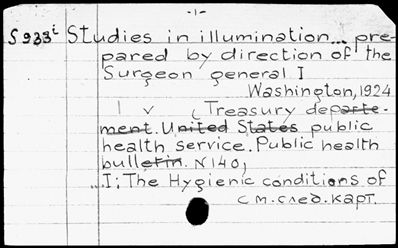 -1-
S 933i Studies in illumination... pre-
pared by direction of the
Surgeon general I
Washington, 1924
1 v (Treasury departe-
ment. United States public
health service. Public health
bulletin. N140)
I; The Hygienic conditions of
см. след. карт.